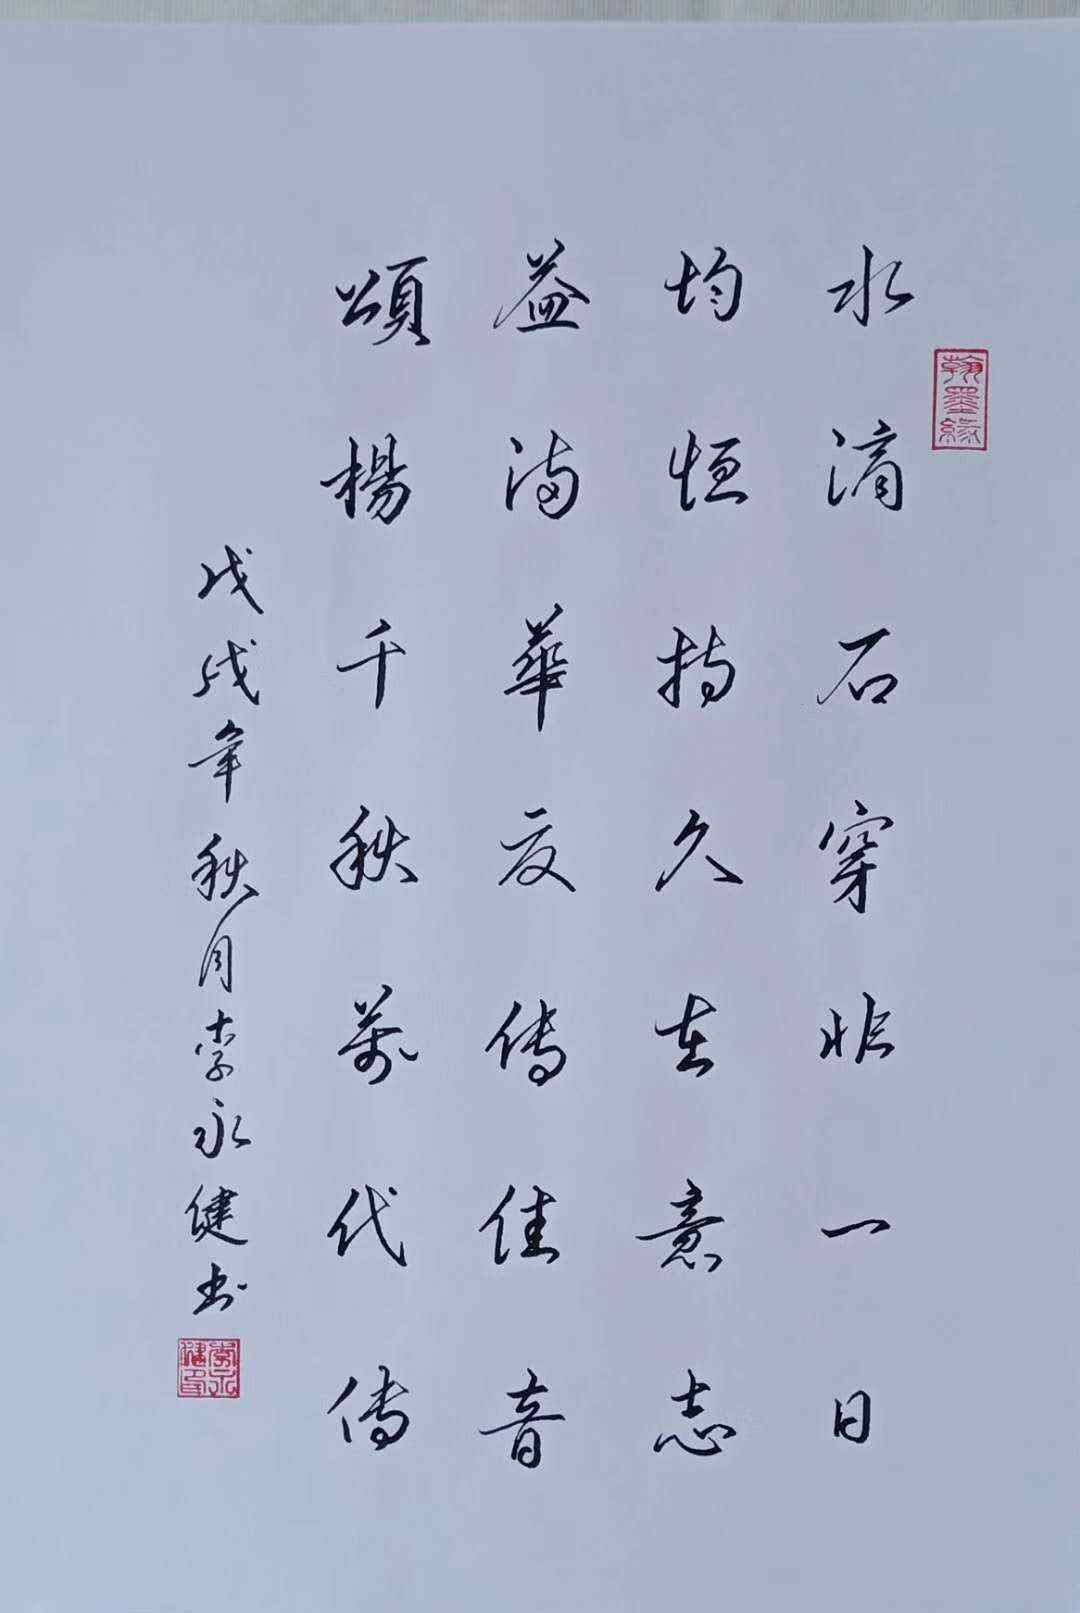 水滴石穿非一日
均恒持久在意志
益满華夏傳佳音
頌楊千秋萬代傳
戊戌年秋月李永健书
翰墨緣
李永健印